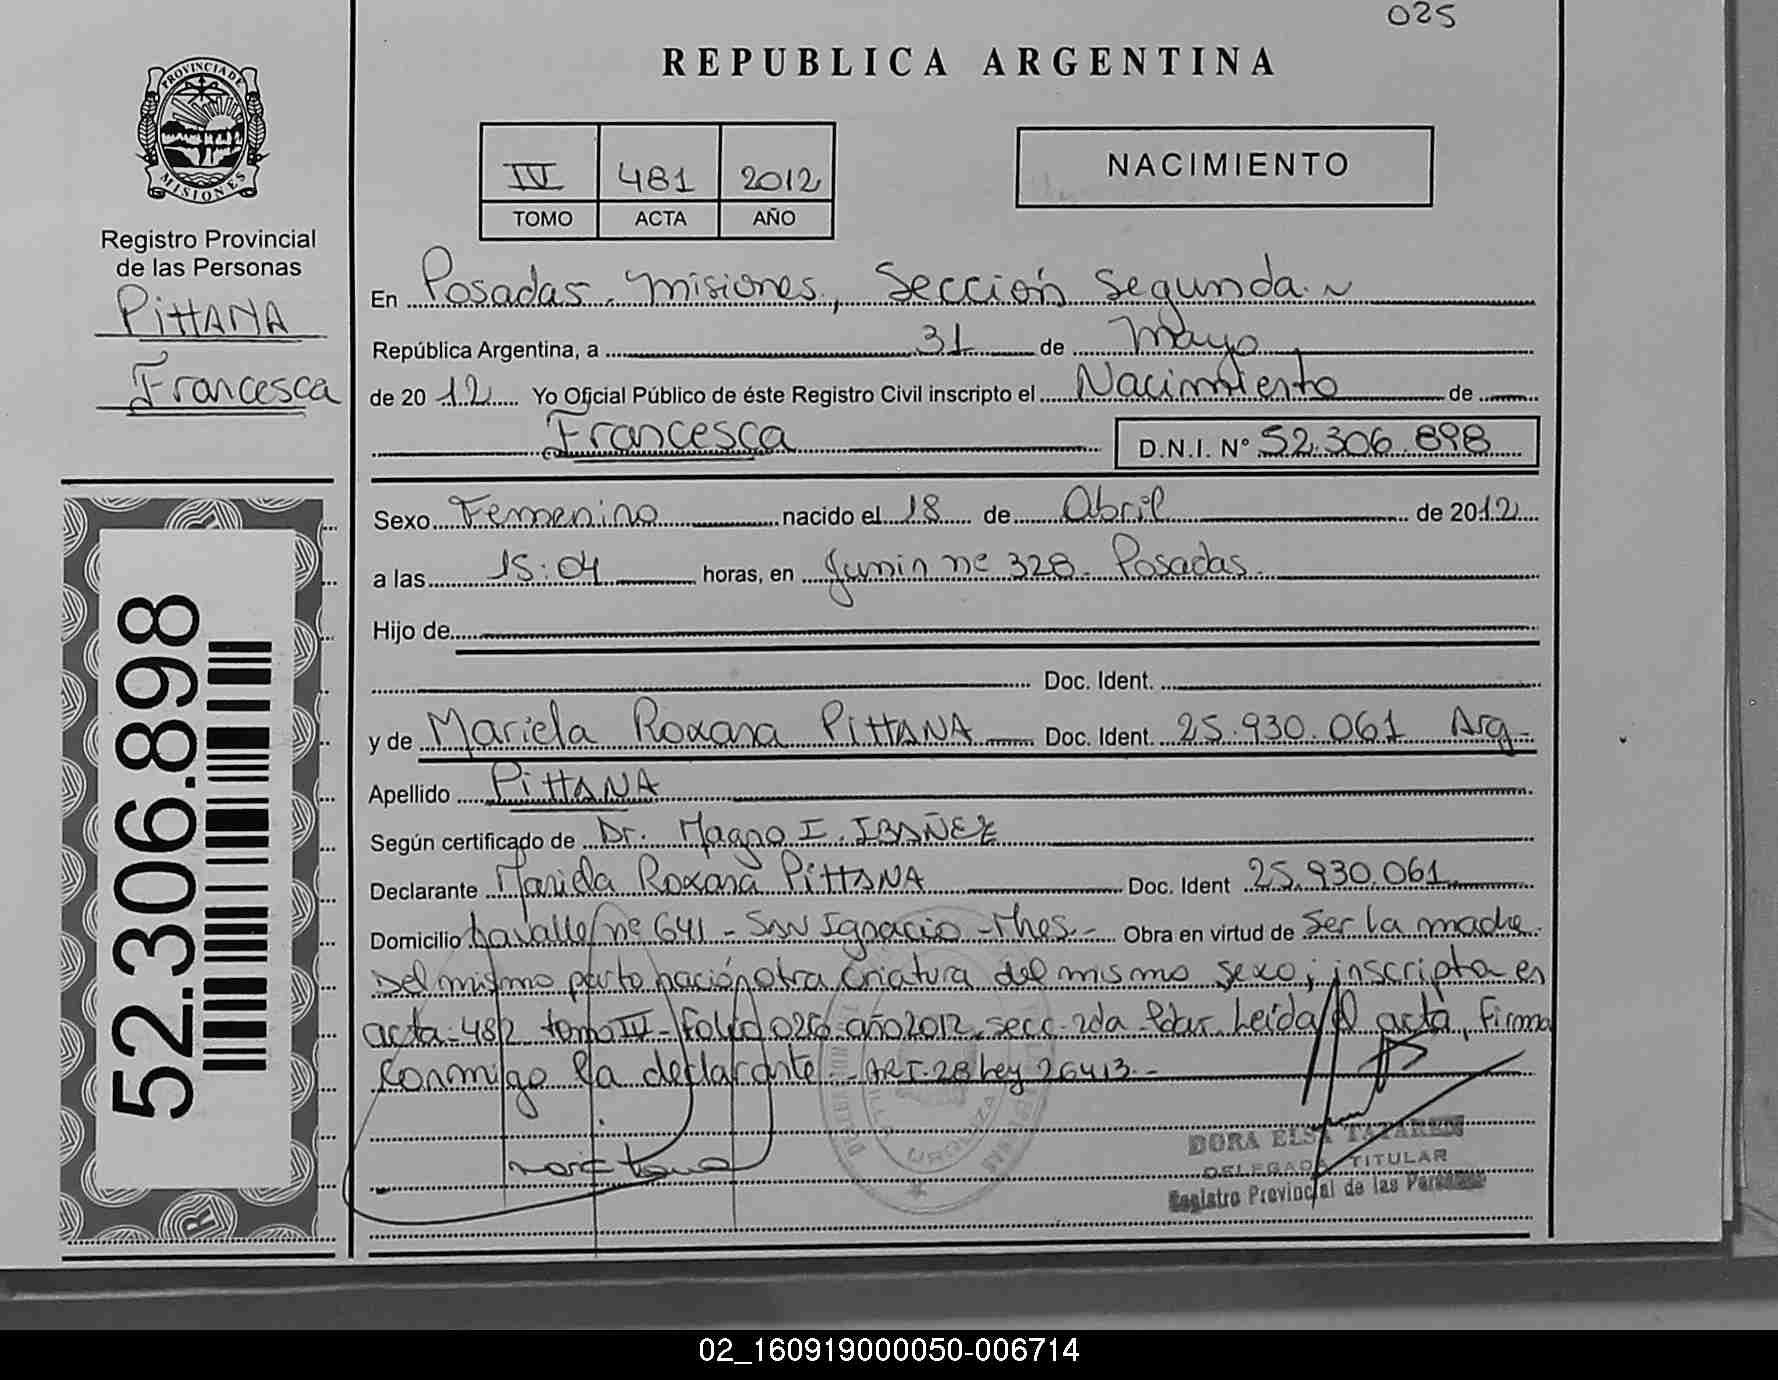 025
REPUBLICA ARGENTINA
PROVINCIA DE
MISIONES
IV 481 2012
TOMO ACTA AÑO
NACIMIENTO
Registro Provincial
de las Personas
PittANA
Francesca
En Posadas. Misiones, Sección Segunda.
República Argentina, a 31 de Mayo
de 2012 Yo Oficial Público de éste Registro Civil inscripto el Nacimiento de
Francesca D.N.I. N° 52.306.898
Sexo Femenino nacido el 18 de Abril de 2012
a las 15:04 horas, en Junin nº 328. Posadas.
Hijo de
Doc. Ident.
y de Mariela Roxana PittANA Doc. Ident. 25.930.061 Arg.
Apellido PittANA
Según certificado de Dr. Magno I. IBAÑEZ
Declarante Mariela Roxana PittANA Doc. Ident 25.930.061
Domicilio Lavalle nº 641 - San Ignacio - Mnes. - Obra en virtud de Ser la madre.
Del mismo parto nació otra criatura del mismo sexo, inscripta en
acta-482 tomo IV- folio 026-año 2012. secc. 2da Pdas. Leída el acta, firma
conmigo la declarante. -ART. 28 Ley 26413.-
DORA ELSA
DELEGADA TITULAR
Registro Provincial de las Personas
52.306.898
02_160919000050-006714